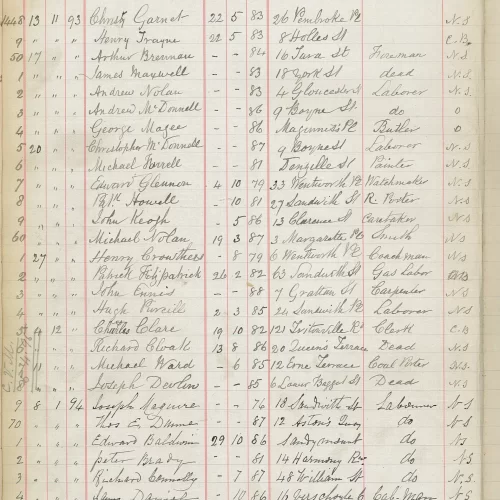 1448 13 11 93 Christy Garnet 22 5 83 26 Pembroke Pl N.S
9 " " " Henry Trayne 22 5 83 8 Holles St C.B.
50 17 " " Arthur Brennan - - 84 16 Tara St Foreman N S
1 " " " James Maxwell - - 83 18 York St dead N.S.
2 " " " Andrew Nolan - - 83 4 Gloucester St Laborer N.S.
3 " " " Andrew McDonnell - - 86 9 Boyne St do O
4 " " " George Magee - - 86 Maginnis Pl Butler O
5 20 " " Christopher McDonnell - - 87 9 Boyne St Laborer N S
6 " " " Michael - - 81 Denzille St Painter N.S.
7 " " " Edward Glennon 4 10 79 33 Wentworth Pl Watchmaker N.S.
8 " " " Howell - 10 81 27 Sandwith St R. Porter N.S.
9 " " " John Keogh - 5 86 13 Clarence St N.S.
60 " " " Michael Nolan 19 3 87 3 Margarets Pl Smith N S
1 27 " " Henry Crowthers - 8 79 6 Wentworth Pl Coachman N S
2 " " " Patrick Fitzpatrick 26 2 82 63 Sandwith St Gas Labor
3 " " " John Ennis - - 88 7 Grattan St Carpenter N S
4 " " " Hugh Purcell 2 3 85 24 Sandwith Pl Laborer N.S
5 4 12 " Charles Clare 19 10 82 121 Clerk C.B
" " " Richard Cloak 13 8 86 20 Queens Terrace Dead N.S.
" " " Michael Ward - 6 85 12 Erne Terrace Coal Porter N.S.
" " " Joseph Devlin - - 85 6 Lower Baggot St Dead N.S.
9 8 1 94 Joseph Maguire - - 76 18 Sandwith St Labourer N S
70 " " " Thos E. Dunne - - 87 12 Astons Quay do N.S
1 " " " Edward Baldwin 29 10 86 Sandymount do N.
2 " " " Peter Brady - - 81 14 Harmony Row do N.S
3 " " " Richard Connolly - 7 87 48 William St do N.S.
4 " " " James Daniel - 10 86 16